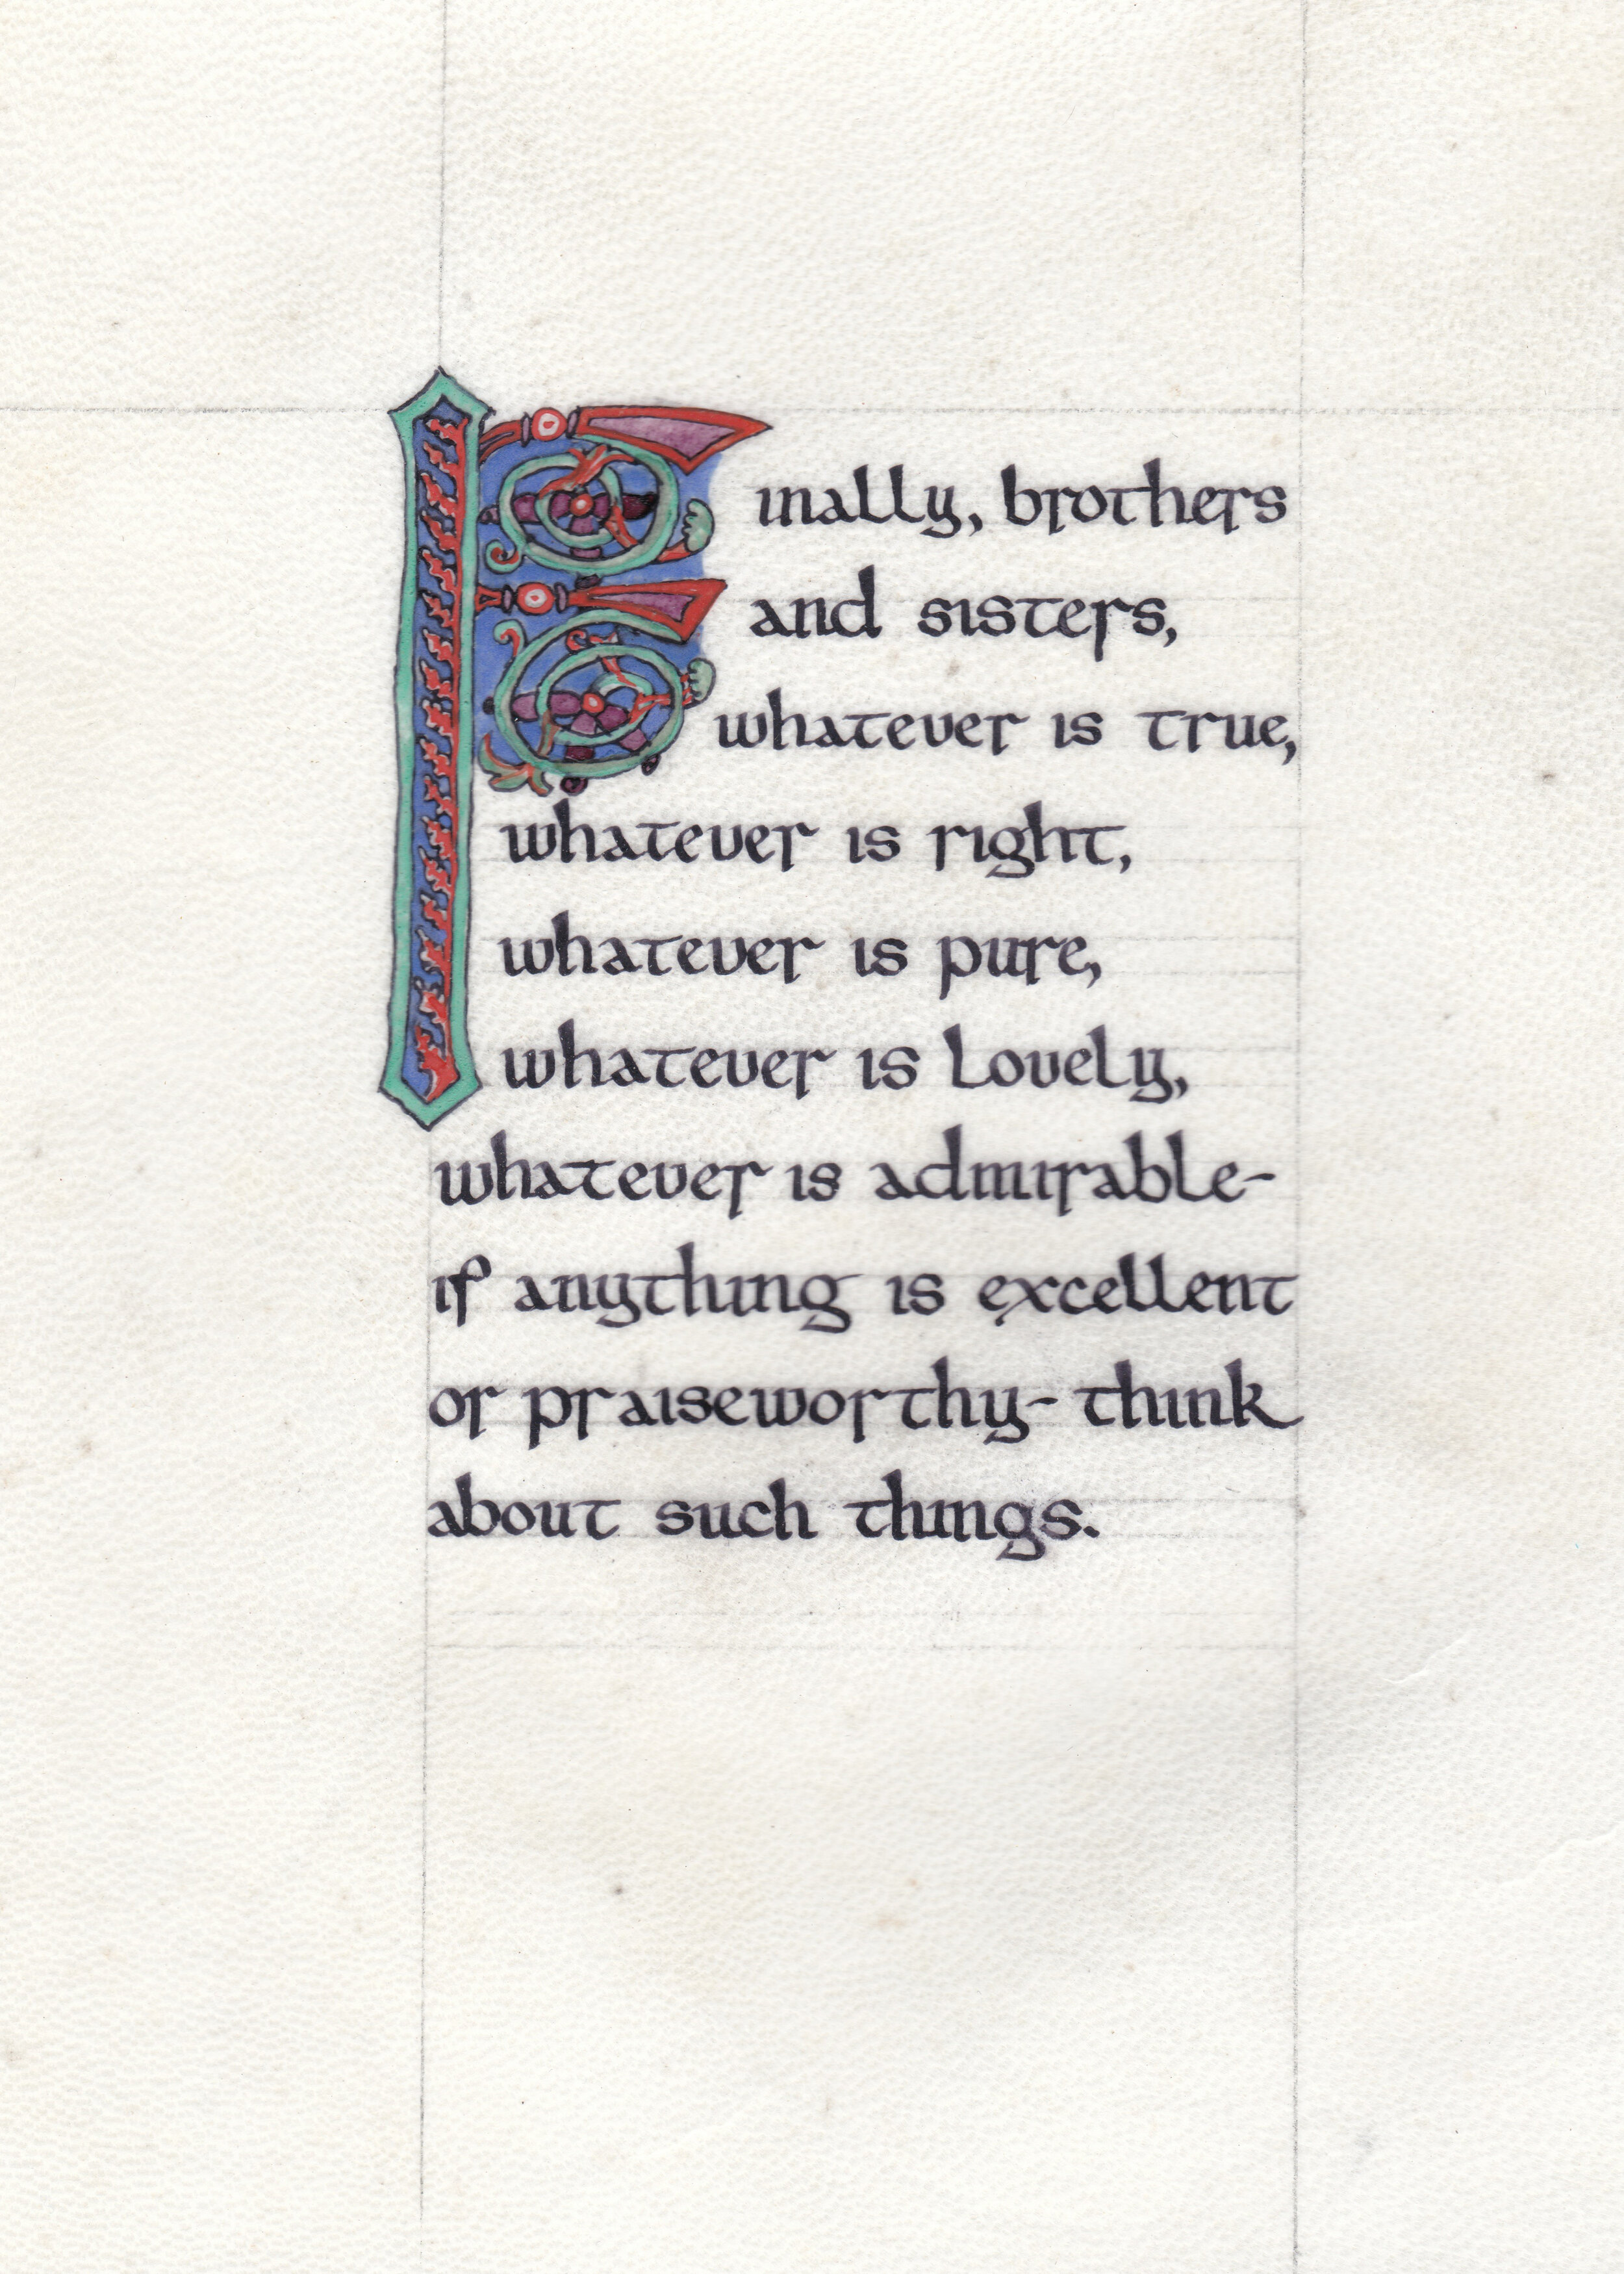 Finally, brothers
and sisters,
whatever is true,
whatever is right,
whatever is pure,
whatever is lovely,
whatever is admirable-
if anything is excellent
or praiseworthy- think
about such things.